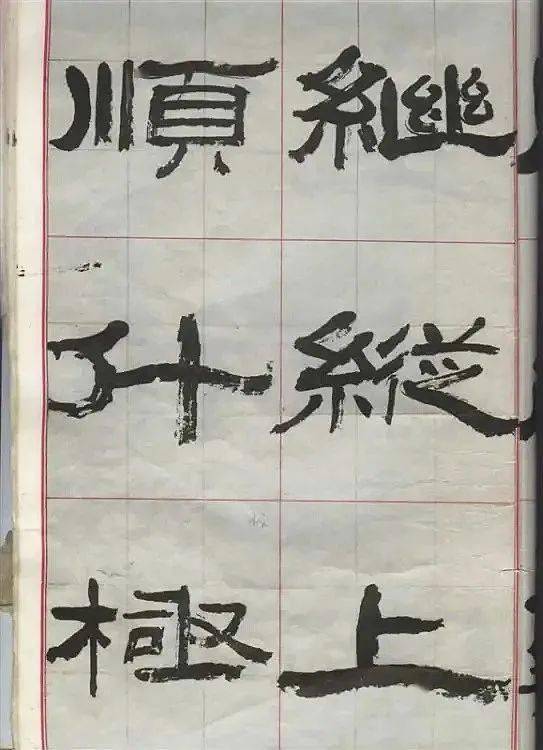 繼縱上
順斗極